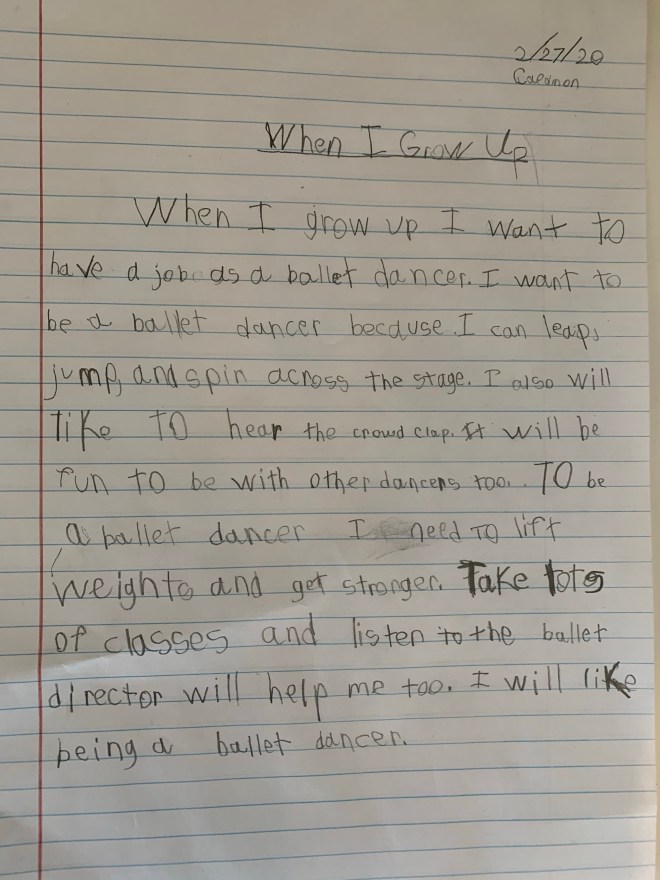 2/27/20
Caedmon
When I Grow Up
When I grow up I want to
have a job as a ballet dancer. I want to
be a ballet dancer because I can leap,
jump, and spin across the stage. I also will
like TO hear the crowd clap. It will be
fun to be with other dancers too. TO be
a ballet dancer I need TO lift
weights and get stronger. Take lots
of classes and listen to the ballet
director will help me too. I will like
being a ballet dancer.